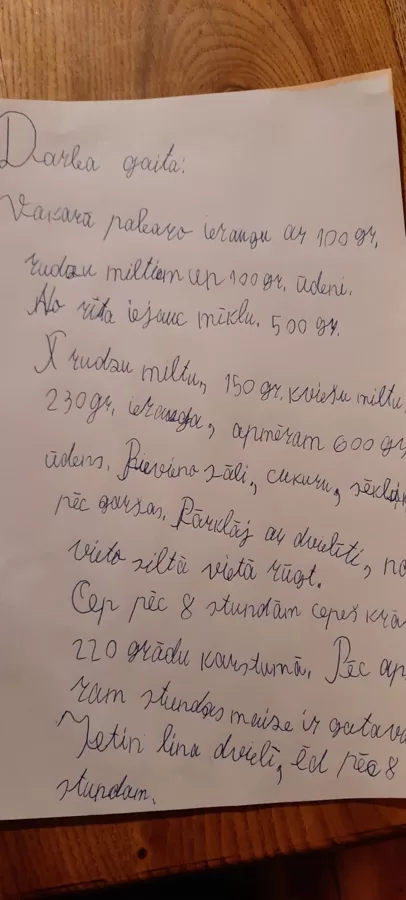 Darba gaita:
Vakarā pabaro ieraugu ar 100 gr.
rudzu miltiem un 100 gr. ūdeni.
No rīta iejauc mīklu. 500 gr.
X rudzu miltu, 150 gr. kviešu miltu,
230 gr. ierauga, apmēram 600 gr.
ūdens. Pievieno sāli, cukuru, sēklas
pēc garšas. Pārklāj ar dvielīti, no
vieto siltā vietā rūgt.
Cep pēc 8 stundām cepeš krās
220 grādu karstumā. Pēc ap
ram stundas maize ir gatava
Ietin lina dvielī, ēd pēc 8
stundām.